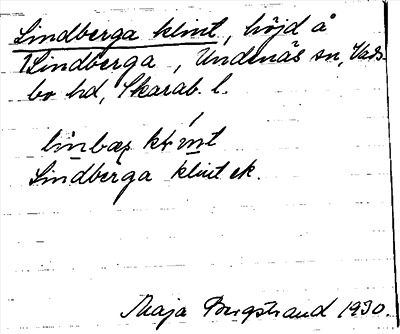 Lindberga klint, höjd å
Lindberga, Undenäs sn, Vads-
bo hd, Skarab. l.
Lindberga klint ek.
Maja Bergstrand 1930.